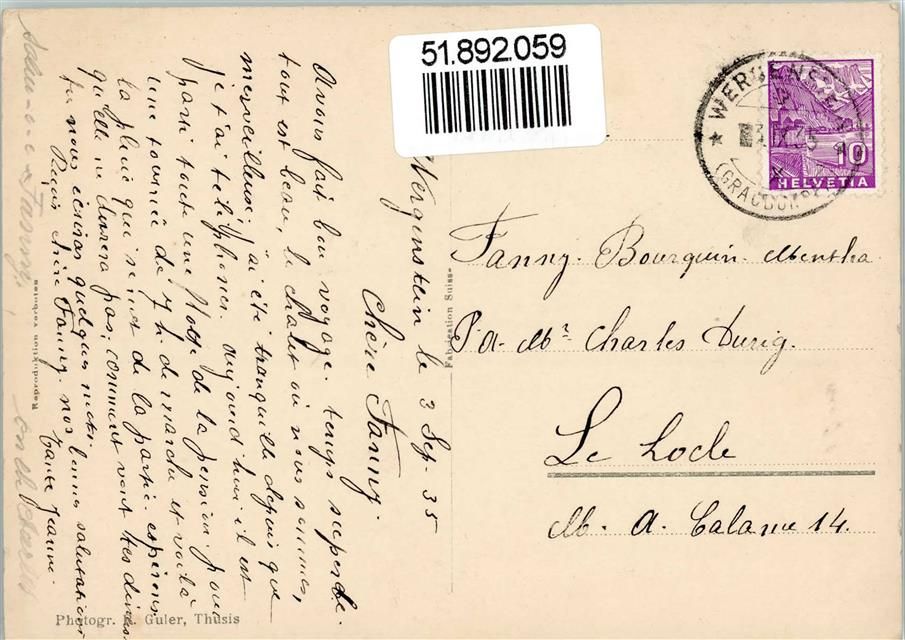 51.892.059
WERGENSTEIN
3.IX.35
(GRAUBÜNDEN)
10
HELVETIA
Wergenstein le 3 Sep. 35
Chère Fanny.
Avons fait bon voyage. temps superbe.
tout est beau, le chalet où nous sommes,
merveilleux; j'ai été tranquille depuis que
je t'ai téléphoner. aujourd'hui il est
parti toute une Noce de la pension pour
une tournée de 7 h. de marche et voilà
la pluie qui se met de la partie. espérons
qu'elle ne durera pas; comment vont tes
tu nous écriras quelques mots.
Reçois chère Fanny. nos bonnes salutations
Tante Jeanne.
Fabrication Suisse
Fanny. Bourquin-Mentha
P.a. Mr. Charles Durig.
Le Locle
M. A. Calame 14.
Reproduktion verboten
Photogr. Guler, Thusis